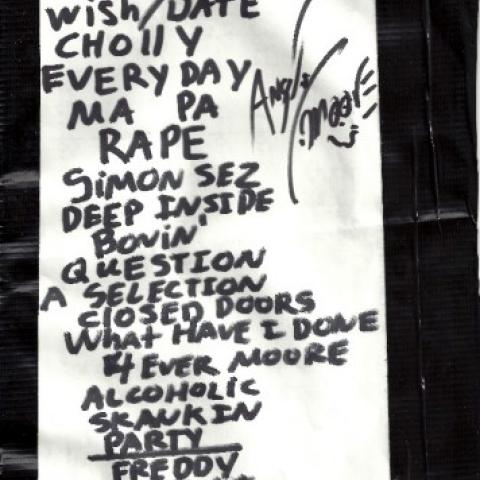 Wish/DATE
CHOllY
EVERYDAY
MA PA
RAPE
SiMON SEZ
DEEP INSIDE
BONIN'
QUESTION
A SELECTION
ClOSED DOORS
What HAVE I DONE
4 EVER MOORE
ALCOHOLIC
SKANKIN
PARTY
FREDDY
Angelo
Moore